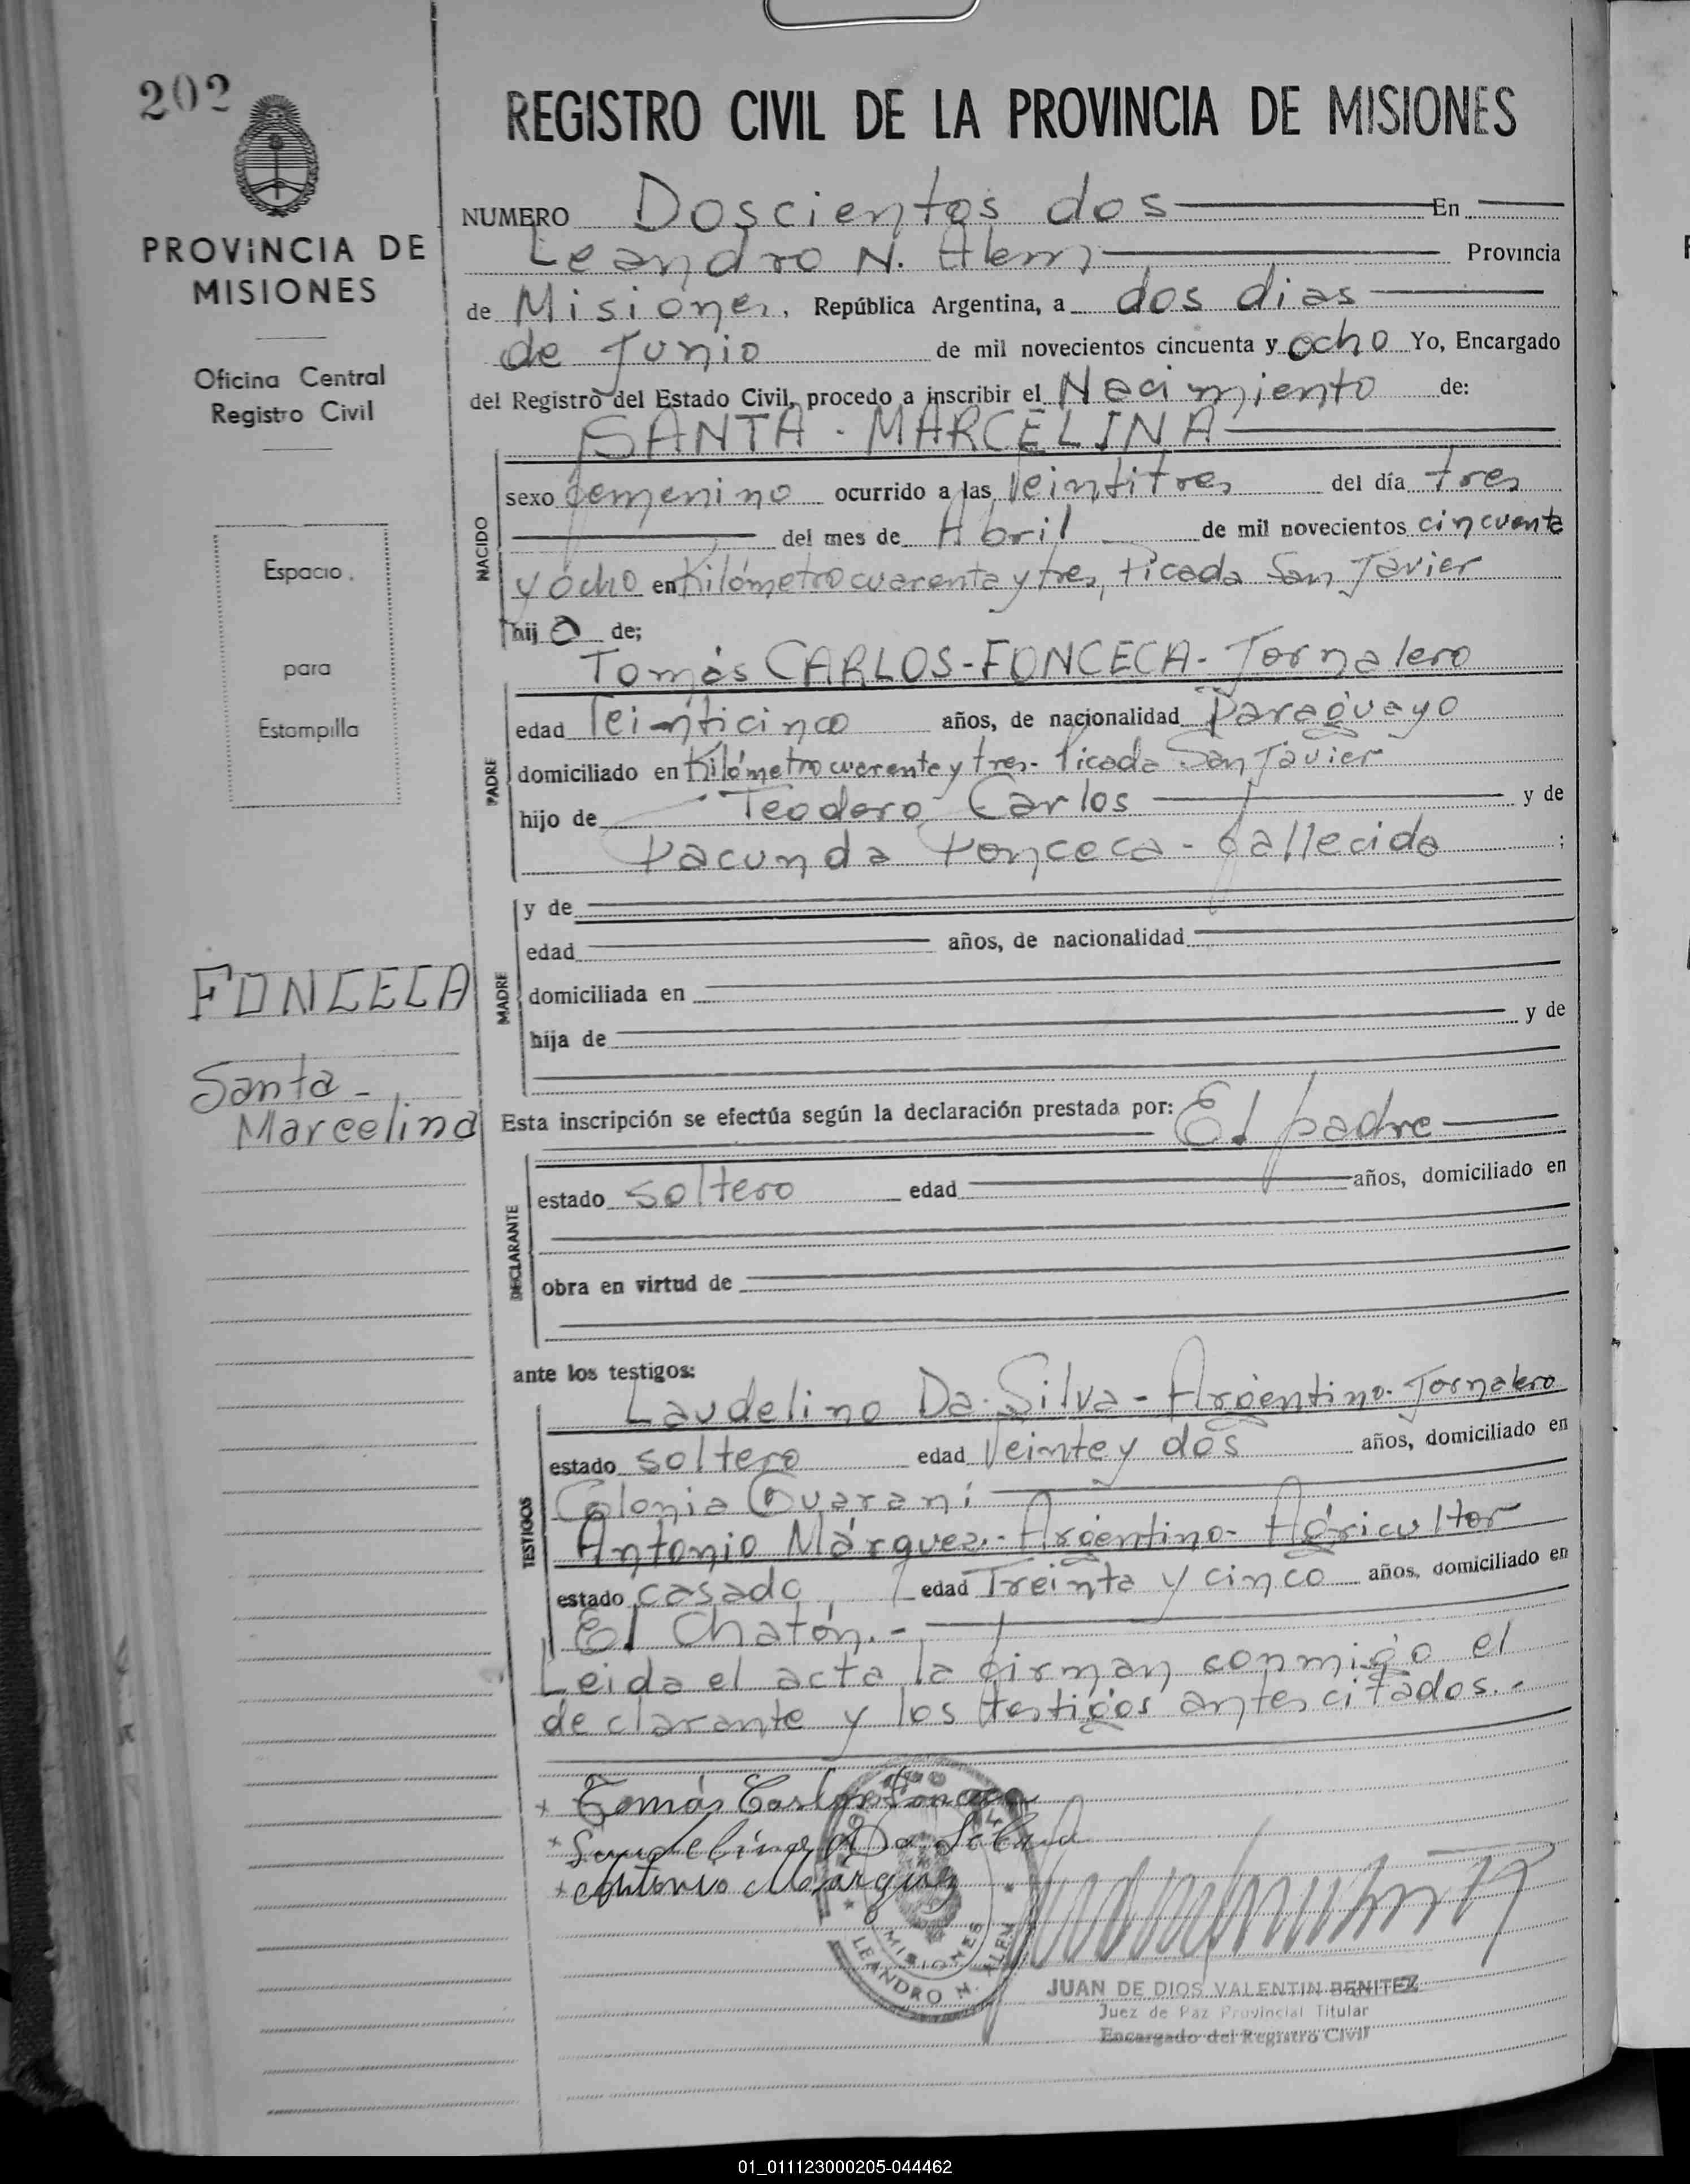 202
PROVINCIA DE
MISIONES
Oficina Central
Registro Civil
Espacio
para
Estampilla
FONCECA
Santa -
Marcelina
REGISTRO CIVIL DE LA PROVINCIA DE MISIONES
NUMERO Doscientos dos En
Leandro N. Alem Provincia
de Misiones, República Argentina, a dos dias
de Junio de mil novecientos cincuenta y ocho Yo, Encargado
del Registro del Estado Civil, procedo a inscribir el Nacimiento de:
SANTA - MARCELINA
NACIDO
sexo femenino ocurrido a las Veintitres del día tres
del mes de Abril de mil novecientos cincuenta
y ocho en Kilómetro cuarenta y tres, Picada San Javier
hij a de;
Tomás CARLOS-FONCECA- Jornalero
PADRE
edad Veinticinco años, de nacionalidad Paraguayo
domiciliado en Kilómetro cuarenta y tres- Picada San Javier
hijo de Teodoro Carlos y de
Facunda Fonceca - fallecida ;
MADRE
y de
edad años, de nacionalidad
domiciliada en
hija de y de
Esta inscripción se efectúa según la declaración prestada por: El padre
DECLARANTE
estado soltero edad años, domiciliado en
obra en virtud de
ante los testigos:
TESTIGOS
Laudelino Da Silva - Argentino- Jornalero
estado soltero edad Veinte y dos años, domiciliado en
Colonia Guarani
Antonio Márquez.- Argentino- Agricultor
estado casado edad Treinta y cinco años, domiciliado en
El Chatón.-
Leida el acta la firman conmigo el
declarante y los testigos antes citados.-
x Tomás Carlos Fonceca
x Laudelino Da Silva
x Antonio Marquez
MISIONES
LEANDRO N. ALEM
JUAN DE DIOS VALENTIN BENITEZ
Juez de Paz Provincial Titular
Encargado del Registro Civil
01_011123000205-044462